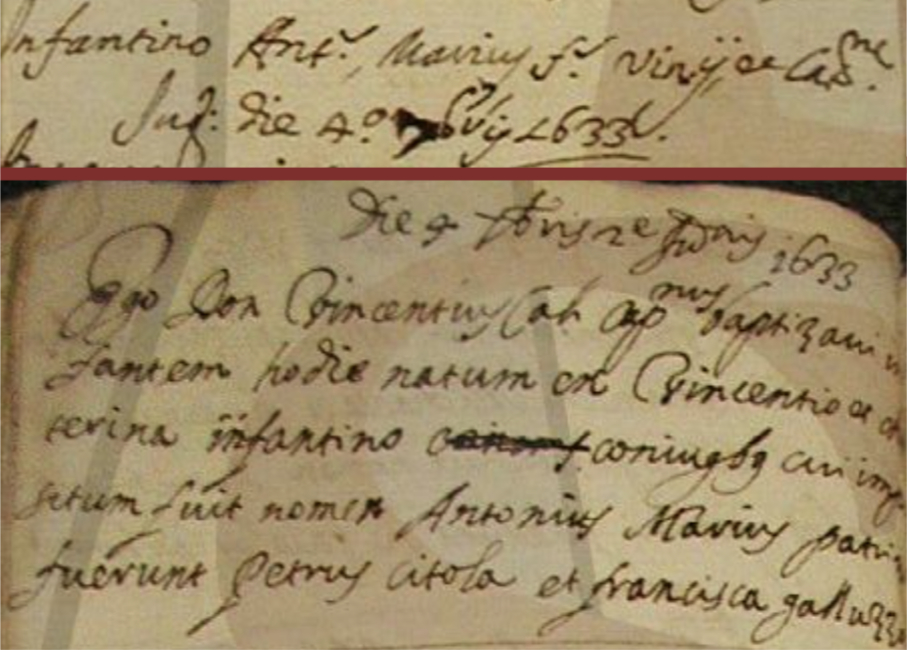 Infantino Ant.s Marius f.s Vinij et Cat.ne
Jud: die 4.o 7bris 1633.
Die 4 7bris 2e Indnis 1633
Ego Don Vincentius Cal Capnus baptizavi in
fantem hodie natum ex Vincentio et Ca
terina infantino coniugbq cui impo
situm fuit nomen Antonius Marius patri
fuerunt Petrus citola et francisca galluzzo